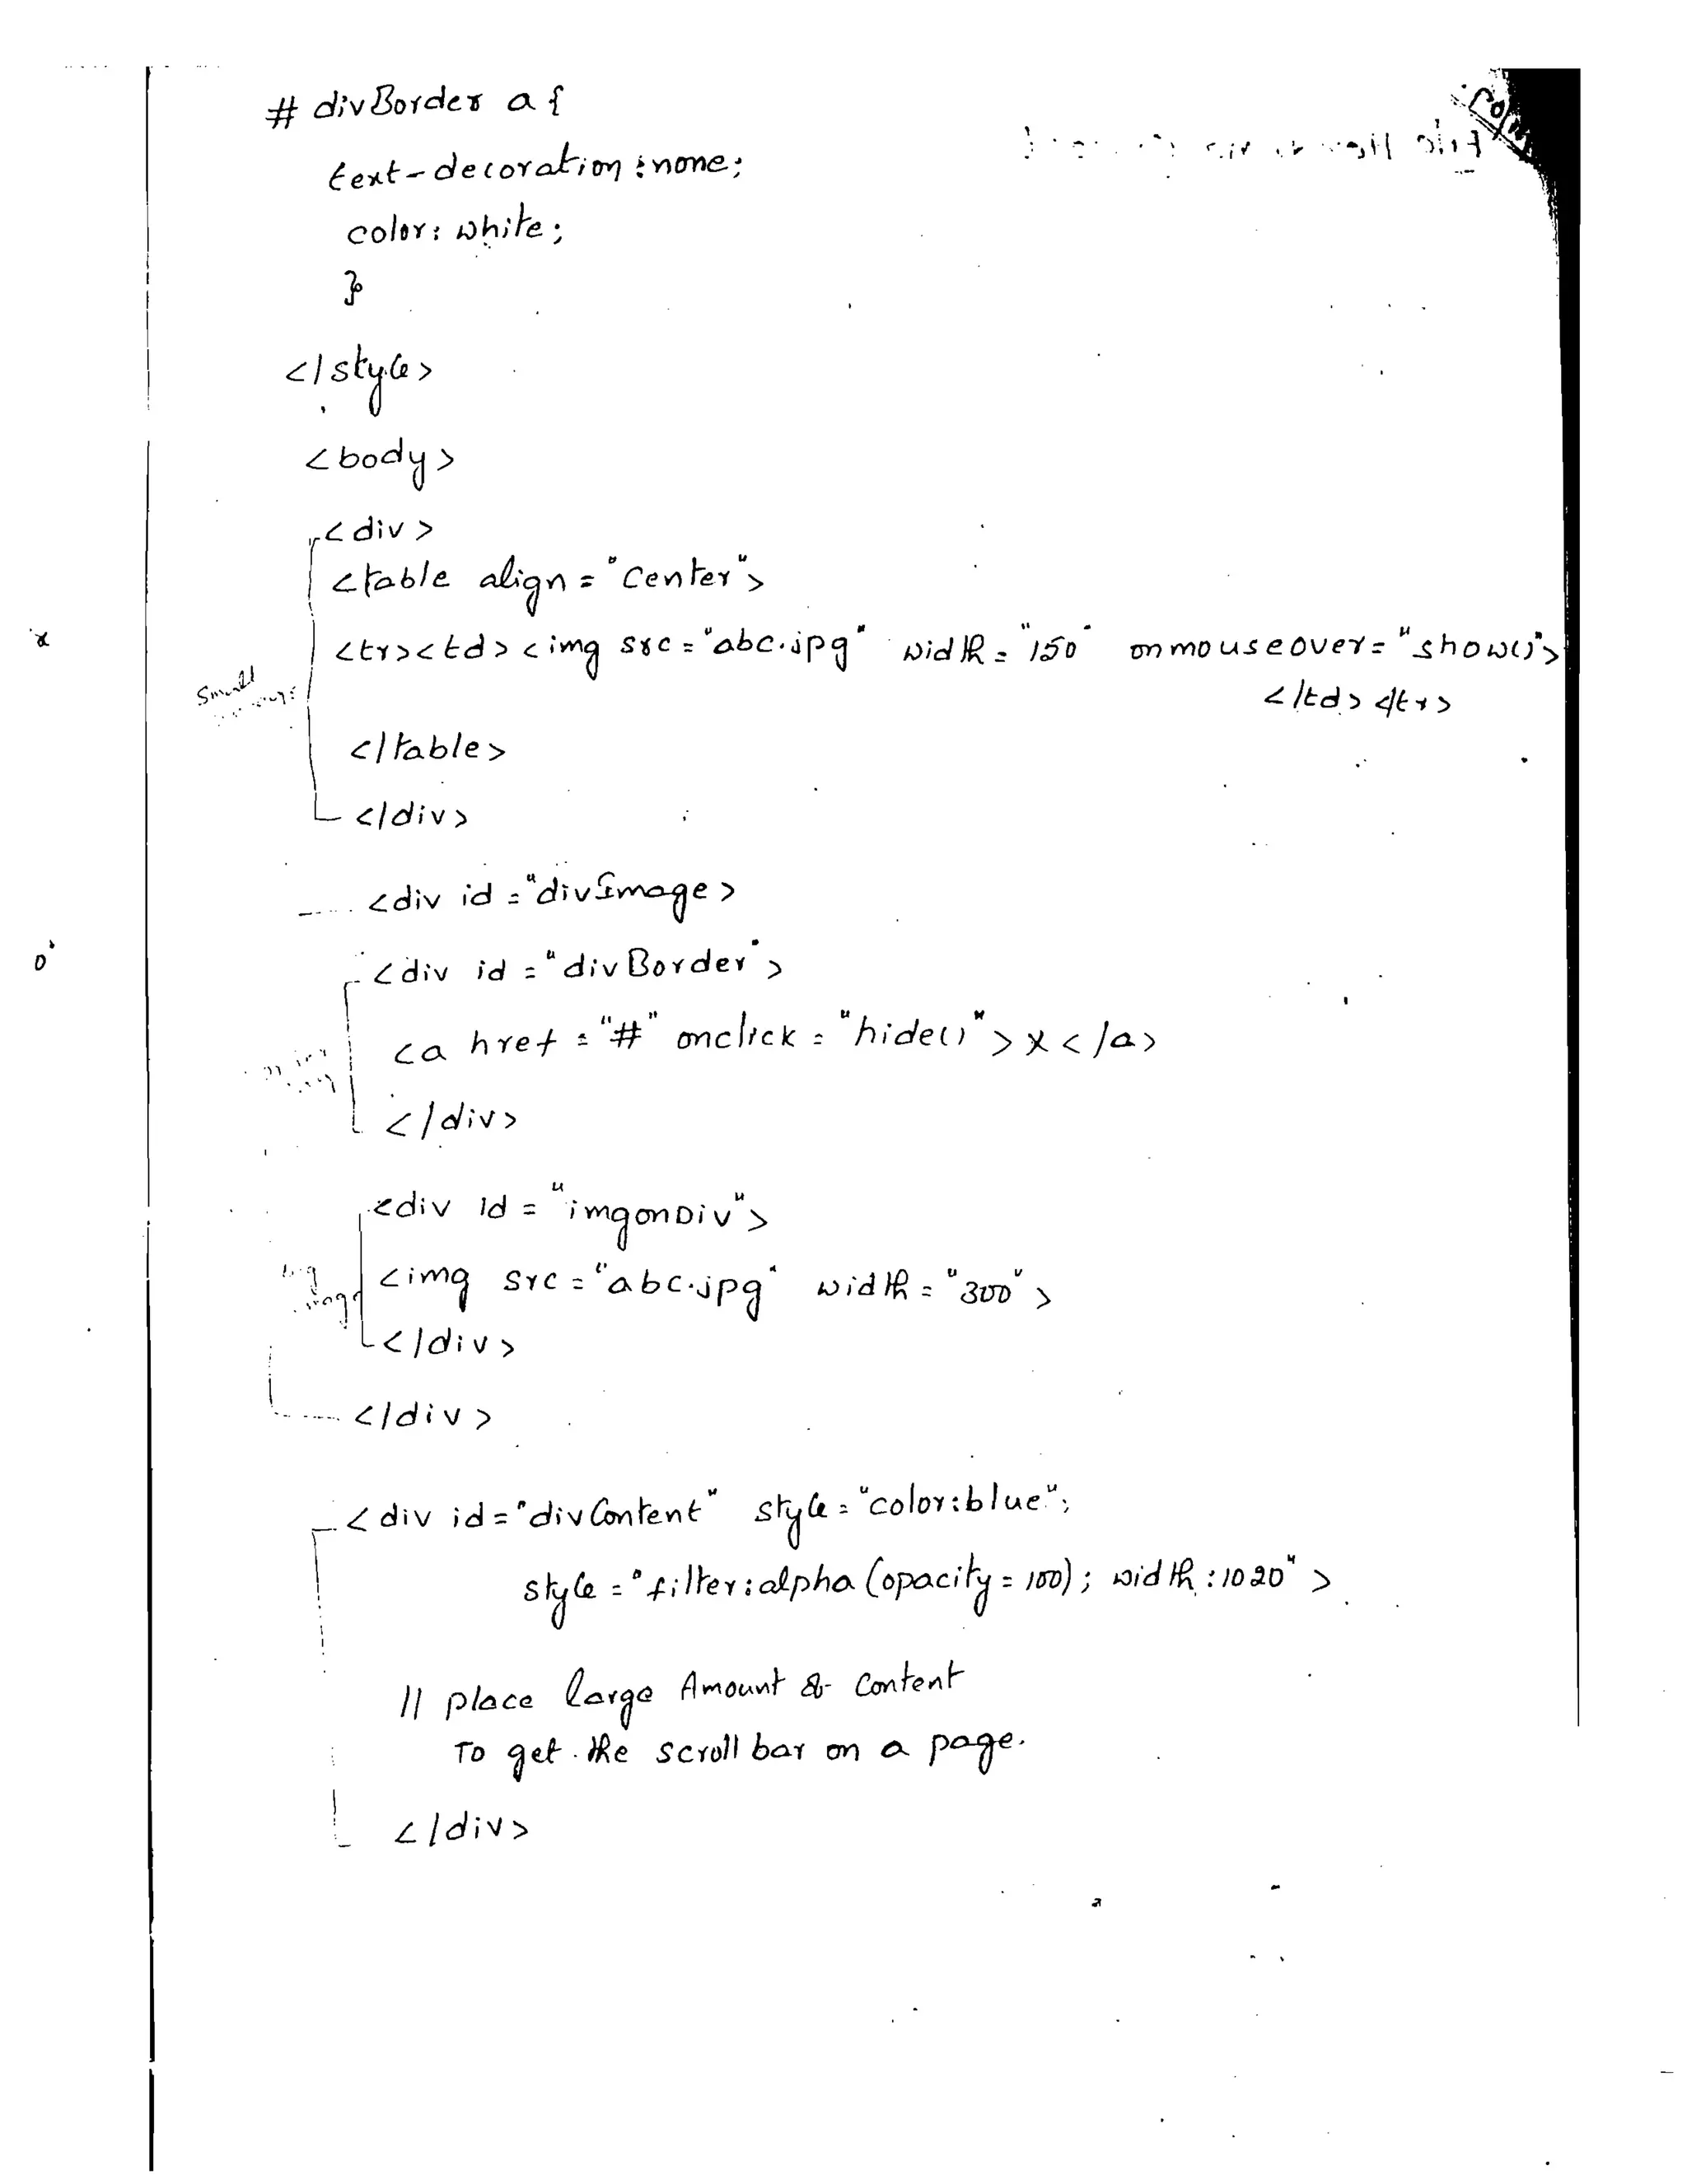 # divBorder a {
text-decoration : none;
color: white;
}
</style>
<body>
<div>
<table align = "center">
<tr><td> <img src = "abc.jpg" width = "150" onmouseover = "show()">
</td> </tr>
Small
</table>
</div>
<div id = "divImage>
<div id = "divBorder">
<a href = "#" onclick = "hide()" > x </a>
</div>
<div id = "imgonDiv">
<img src = "abc.jpg" width = "300" >
</div>
</div>
<div id = "divContent" style = "color:blue";
style = "filter:alpha (opacity = 100) ; width : 1020" >
// place large Amount of Content
To get the scroll bar on a page.
</div>